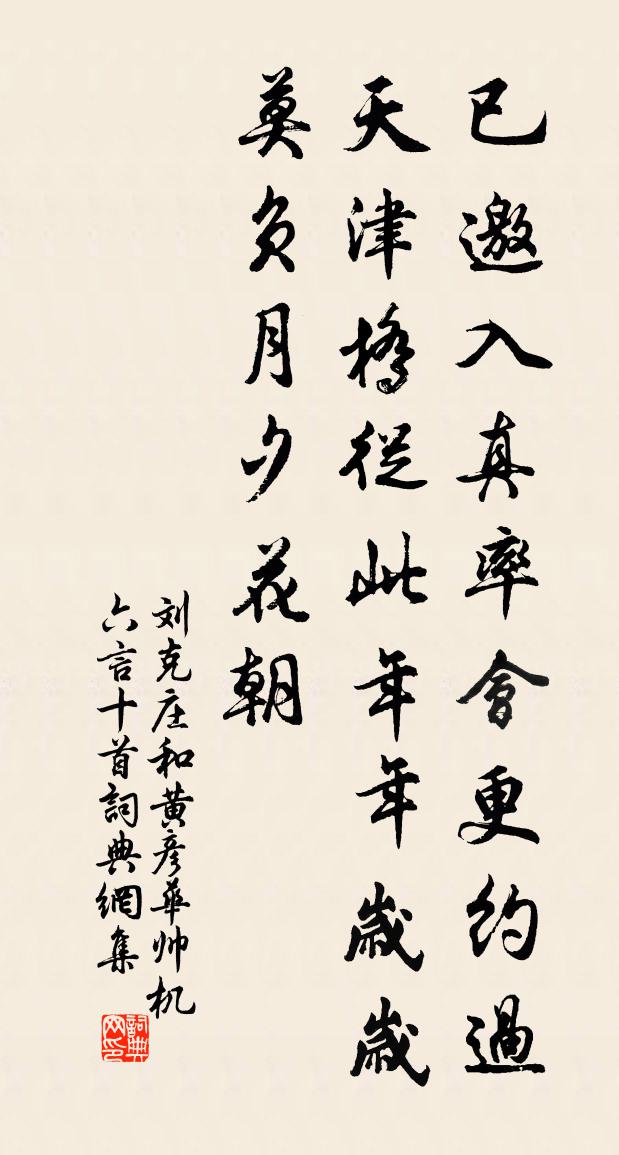 已邀入真率會更約過
天津橋從此年年歲歲
莫負月夕花朝
刘克庄和黄彦華帅机
六言十首詞典網集
詞典
网印